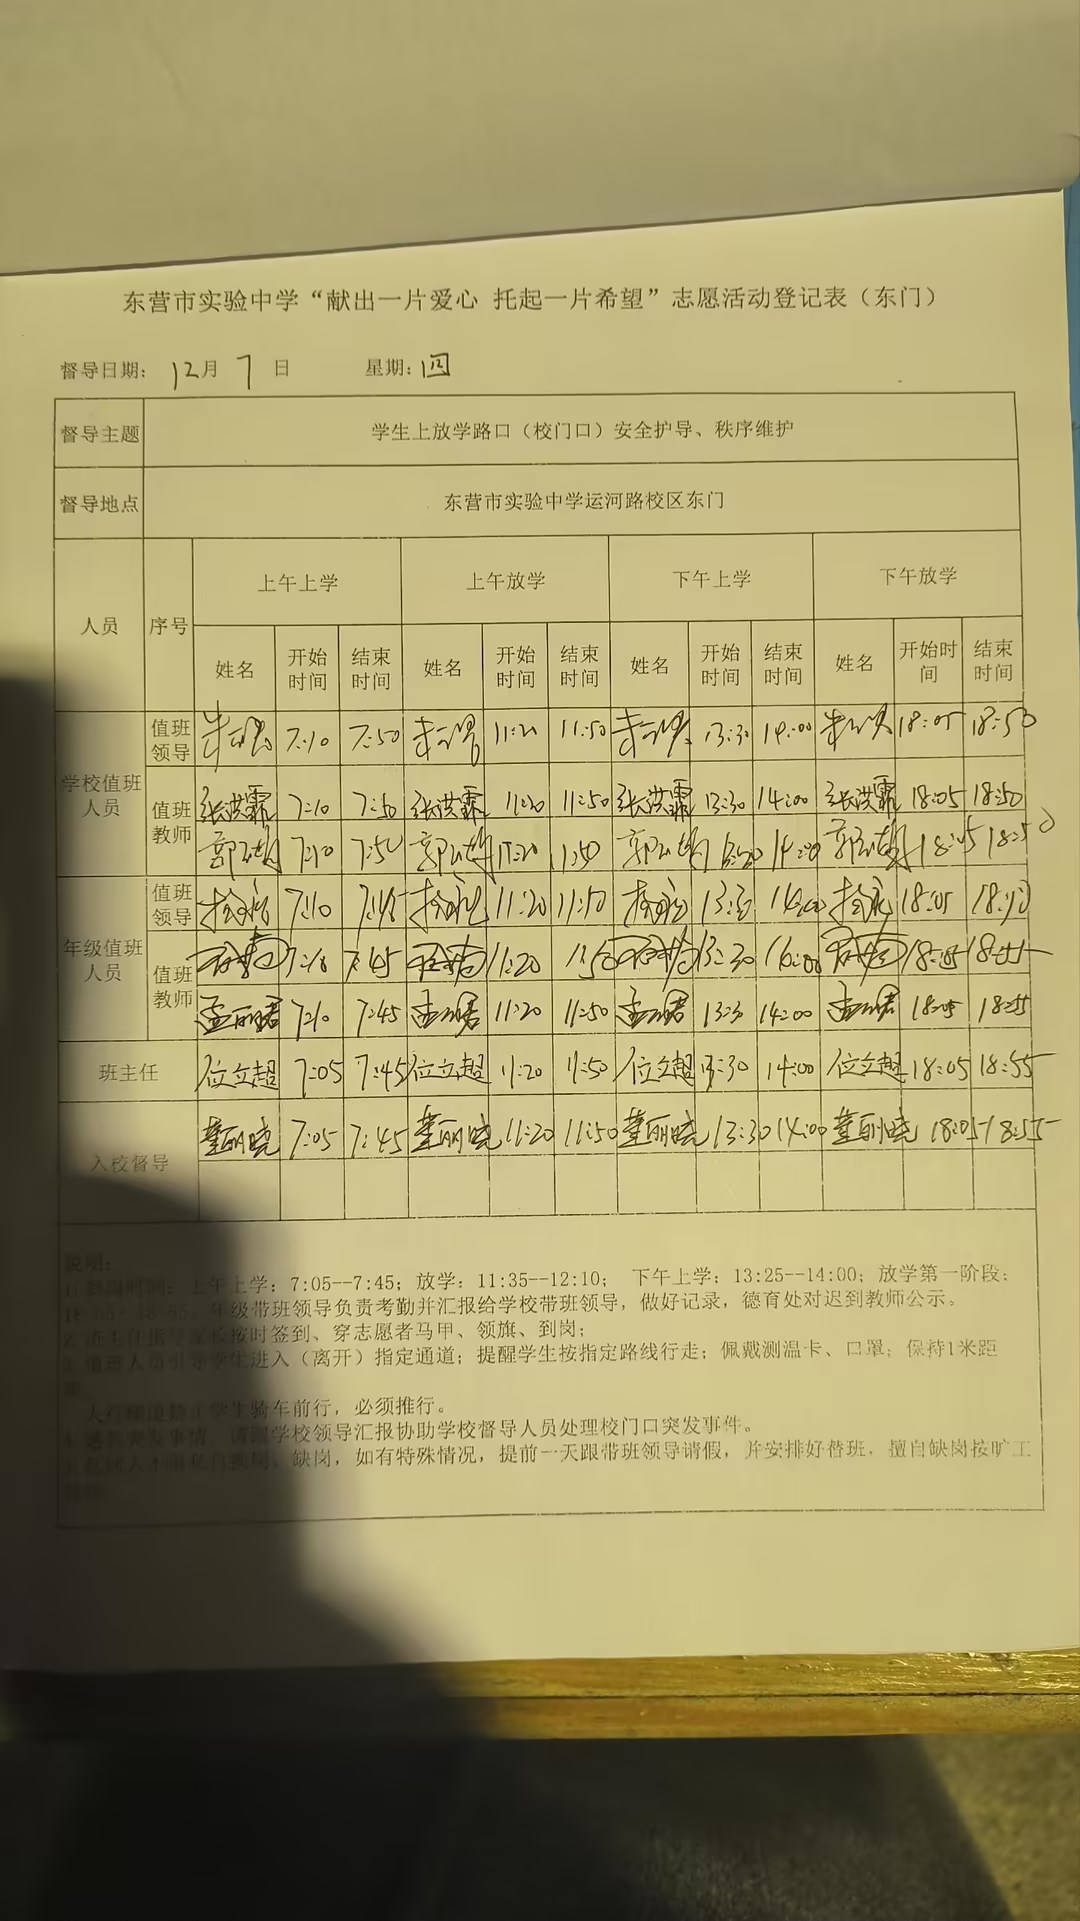 东营市实验中学“献出一片爱心 托起一片希望”志愿活动登记表（东门）
督导日期： 12月 7 日 星期：四
督导主题 学生上放学路口（校门口）安全护导、秩序维护
督导地点 东营市实验中学运河路校区东门
人员 序号 上午上学 上午放学 下午上学 下午放学
姓名 开始时间 结束时间 姓名 开始时间 结束时间 姓名 开始时间 结束时间 姓名 开始时间 结束时间
学校值班人员 值班领导 7:10 7:50 11:20 11:50 13:30 14:00 18:05 18:50
值班教师 张洪霏 7:10 7:50 张洪霏 11:20 11:50 张洪霏 13:30 14:00 张洪霏 18:05 18:50
7:10 7:50 11:20 11:50 14:00 18:05 18:50
年级值班人员 值班领导 7:10 7:45 11:20 11:50 13:30 14:00 18:05
值班教师 7:10 7:45 11:20 11:50 13:30 18:05 18:55
孟丽君 7:10 7:45 11:20 11:50 13:30 14:00 18:05 18:55
班主任 位立超 7:05 7:45 位立超 11:20 11:50 位立超 13:30 14:00 位立超 18:05 18:55
入校督导 董丽晓 7:05 7:45 董丽晓 11:20 11:50 董丽晓 13:30 14:00 董丽晓 18:05 18:55
说明：
上午上学：7:05--7:45；放学：11:35--12:10； 下午上学：13:25--14:00；放学第一阶段：
年级带班领导负责考勤并汇报给学校带班领导，做好记录，德育处对迟到教师公示。
按时签到、穿志愿者马甲、领旗、到岗；
进入（离开）指定通道；提醒学生按指定路线行走；佩戴测温卡、口罩；保持1米距
骑车前行，必须推行。
学校领导汇报协助学校督导人员处理校门口突发事件。
缺岗，如有特殊情况，提前一天跟带班领导请假，并安排好替班，擅自缺岗按旷工